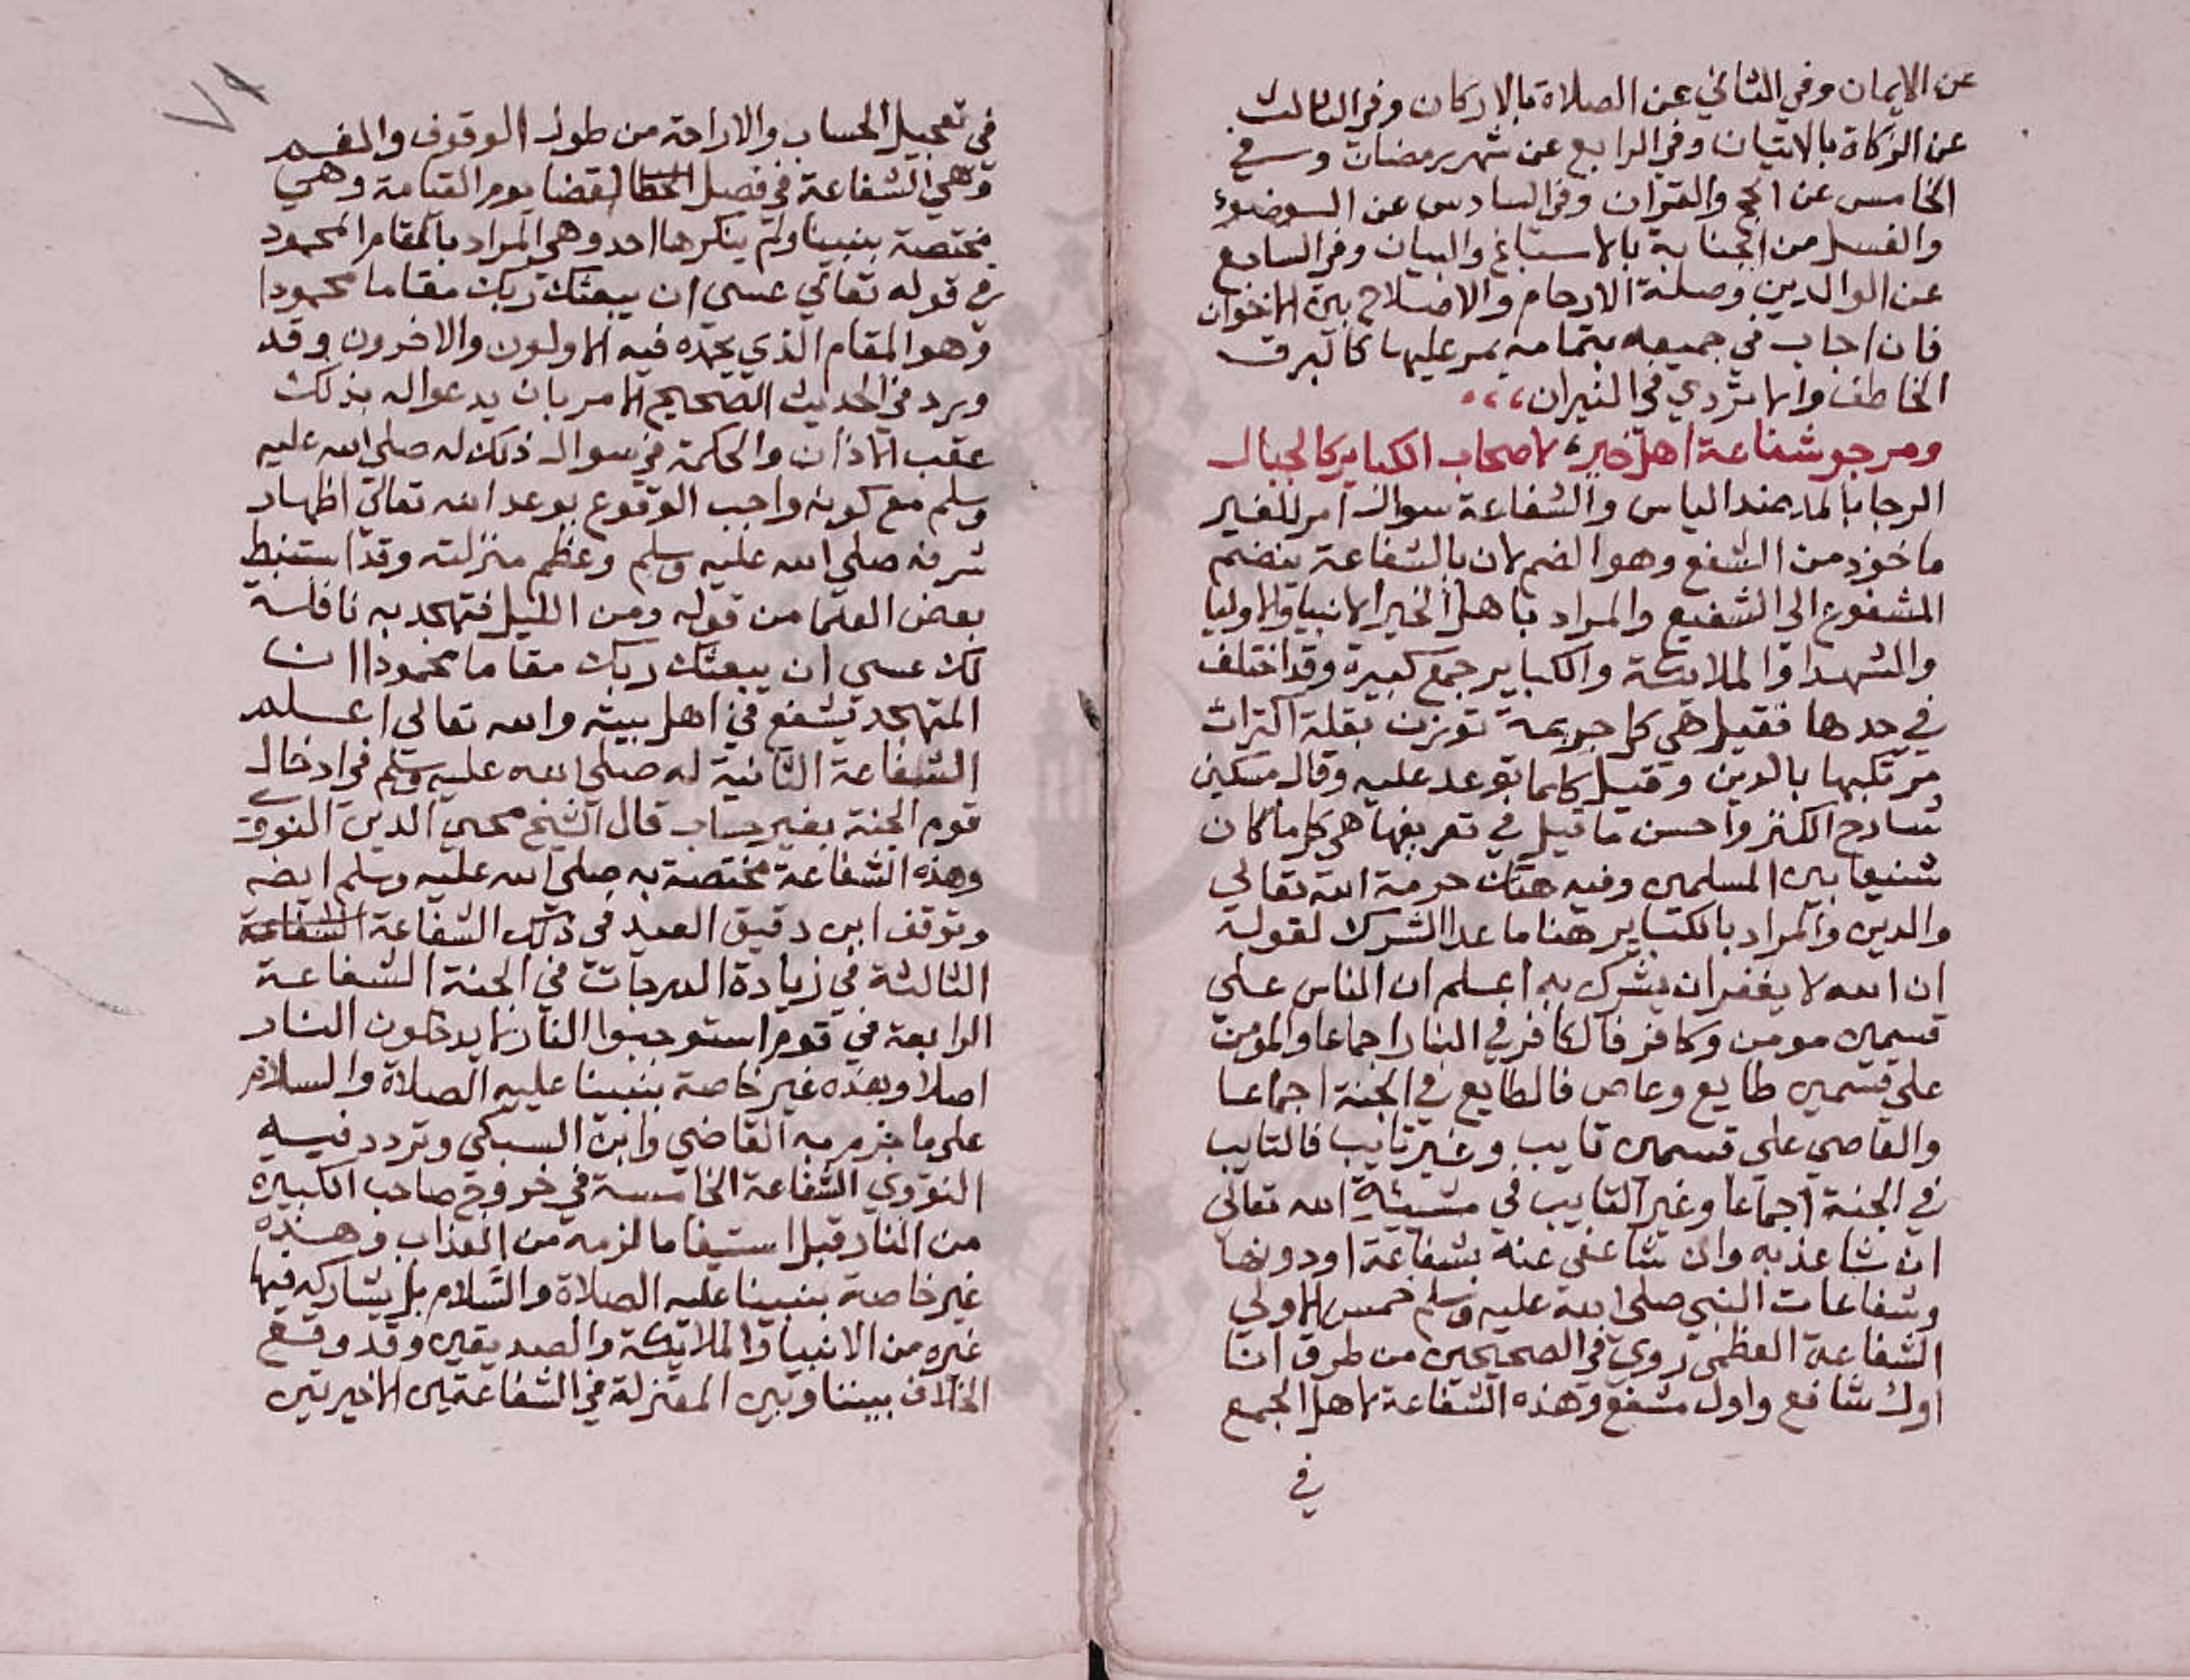 عن الايمان وفي الثاني عن الصلاة بالاركان وفي الثالث
عن الزكاة بالاتيان وفي الرابع عن شهر رمضان وفي
الخامس عن الحج والقران وفي السادس عن الوضوء
والغسل من الجنابة بالاسباغ والبيان وفي السابع
عن الوالدين وصلة الارحام والاصلاح بين الاخوان
فان اجاب في جميعه بتمامه يمر عليها كالبرق
الخاطف والا تردي في النيران
ومرجو شفاعة اهل خير لاصحاب الكباير كالجبال
الرجا بالمد ضد الياس والشفاعة سوال امر للغير
ماخوذ من الشفع وهو الضم لان بالشفاعة ينضم
المشفوع الي الشفيع والمراد باهل الخير الانبيا والاوليا
والشهدا والملايكة والكباير جمع كبيرة وقد اختلف
في حدها فقيل هي كل جريمة تؤزن بقلة اكتراث
مرتكبها بالدين وقيل كلما توعد عليه وقال مسكين
شارح الكنز واحسن ما قيل في تعريفها هي كل ما كان
شنيعا بين المسلمين وفيه هتك حرمة الله تعالي
والدين والمراد بالكباير هنا ما عدا الشرك لقوله
ان الله لا يغفر ان يشرك به اعلم ان الناس علي
قسمين مومن وكافر فالكافر في النار اجماعا والمومن
علي قسمين طايع وعاص فالطايع في الجنة اجماعا
والعاصي علي قسمين تايب وغير تايب فالتايب
في الجنة اجماعا وغير التايب في مشيئة الله تعالي
ان شا عذبه وان شا عفي عنه بشفاعة او دونها
وشفاعات النبي صلي الله عليه وسلم خمس الاولي
الشفاعة العظمي روي في الصحيحين من طرق انا
اول شافع واول مشفع وهذه الشفاعة لاهل الجمع
في
٧٩
في تعجيل الحساب والاراحة من طول الوقوف والغم
وهي الشفاعة في فصل القضا يوم القيامة وهي
مختصة بنبينا ولم ينكرها احد وهي المراد بالمقام المحمود
في قوله تعالي عسي ان يبعثك ربك مقاما محمودا
وهو المقام الذي يحمده فيه الاولون والاخرون وقد
ورد في الحديث الصحيح الامر بان يدعوا له بذلك
عقب الاذان والحكمة في سوال ذلك له صلي الله عليه
وسلم مع كونه واجب الوقوع بوعد الله تعالي اظهار
شرفه صلي الله عليه وسلم وعظم منزلته وقد استنبط
بعض العلما من قوله ومن الليل فتهجد به نافلة
لك عسي ان يبعثك ربك مقاما محمودا ان
المتهجد يشفع في اهل بيته والله تعالي اعلم
الشفاعة الثانية له صلي الله عليه وسلم في ادخال
قوم الجنة بغير حساب قال الشيخ محيي الدين النووي
وهذه الشفاعة مختصة به صلي الله عليه وسلم ايضم
وتوقف ابن دقيق العيد في ذلك الشفاعة الشفاعة
الثالثة في زيادة الدرجات في الجنة الشفاعة
الرابعة في قوم استوجبوا النار لا يدخلون النار
اصلا وهذه غير خاصة بنبينا عليه الصلاة والسلام
علي ما جزم به القاضي وابن السبكي وتردد فيه
النووي الشفاعة الخامسة في خروج صاحب الكبيرة
من النار قبل استيفا ما لزمه من العذاب وهذه
غير خاصة بنبينا عليه الصلاة والسلام بل يشاركه فيها
غيره من الانبيا والملايكة والصديقين وقد وقع
الخلاف بيننا وبين المعتزلة في الشفاعتين الاخيرتين